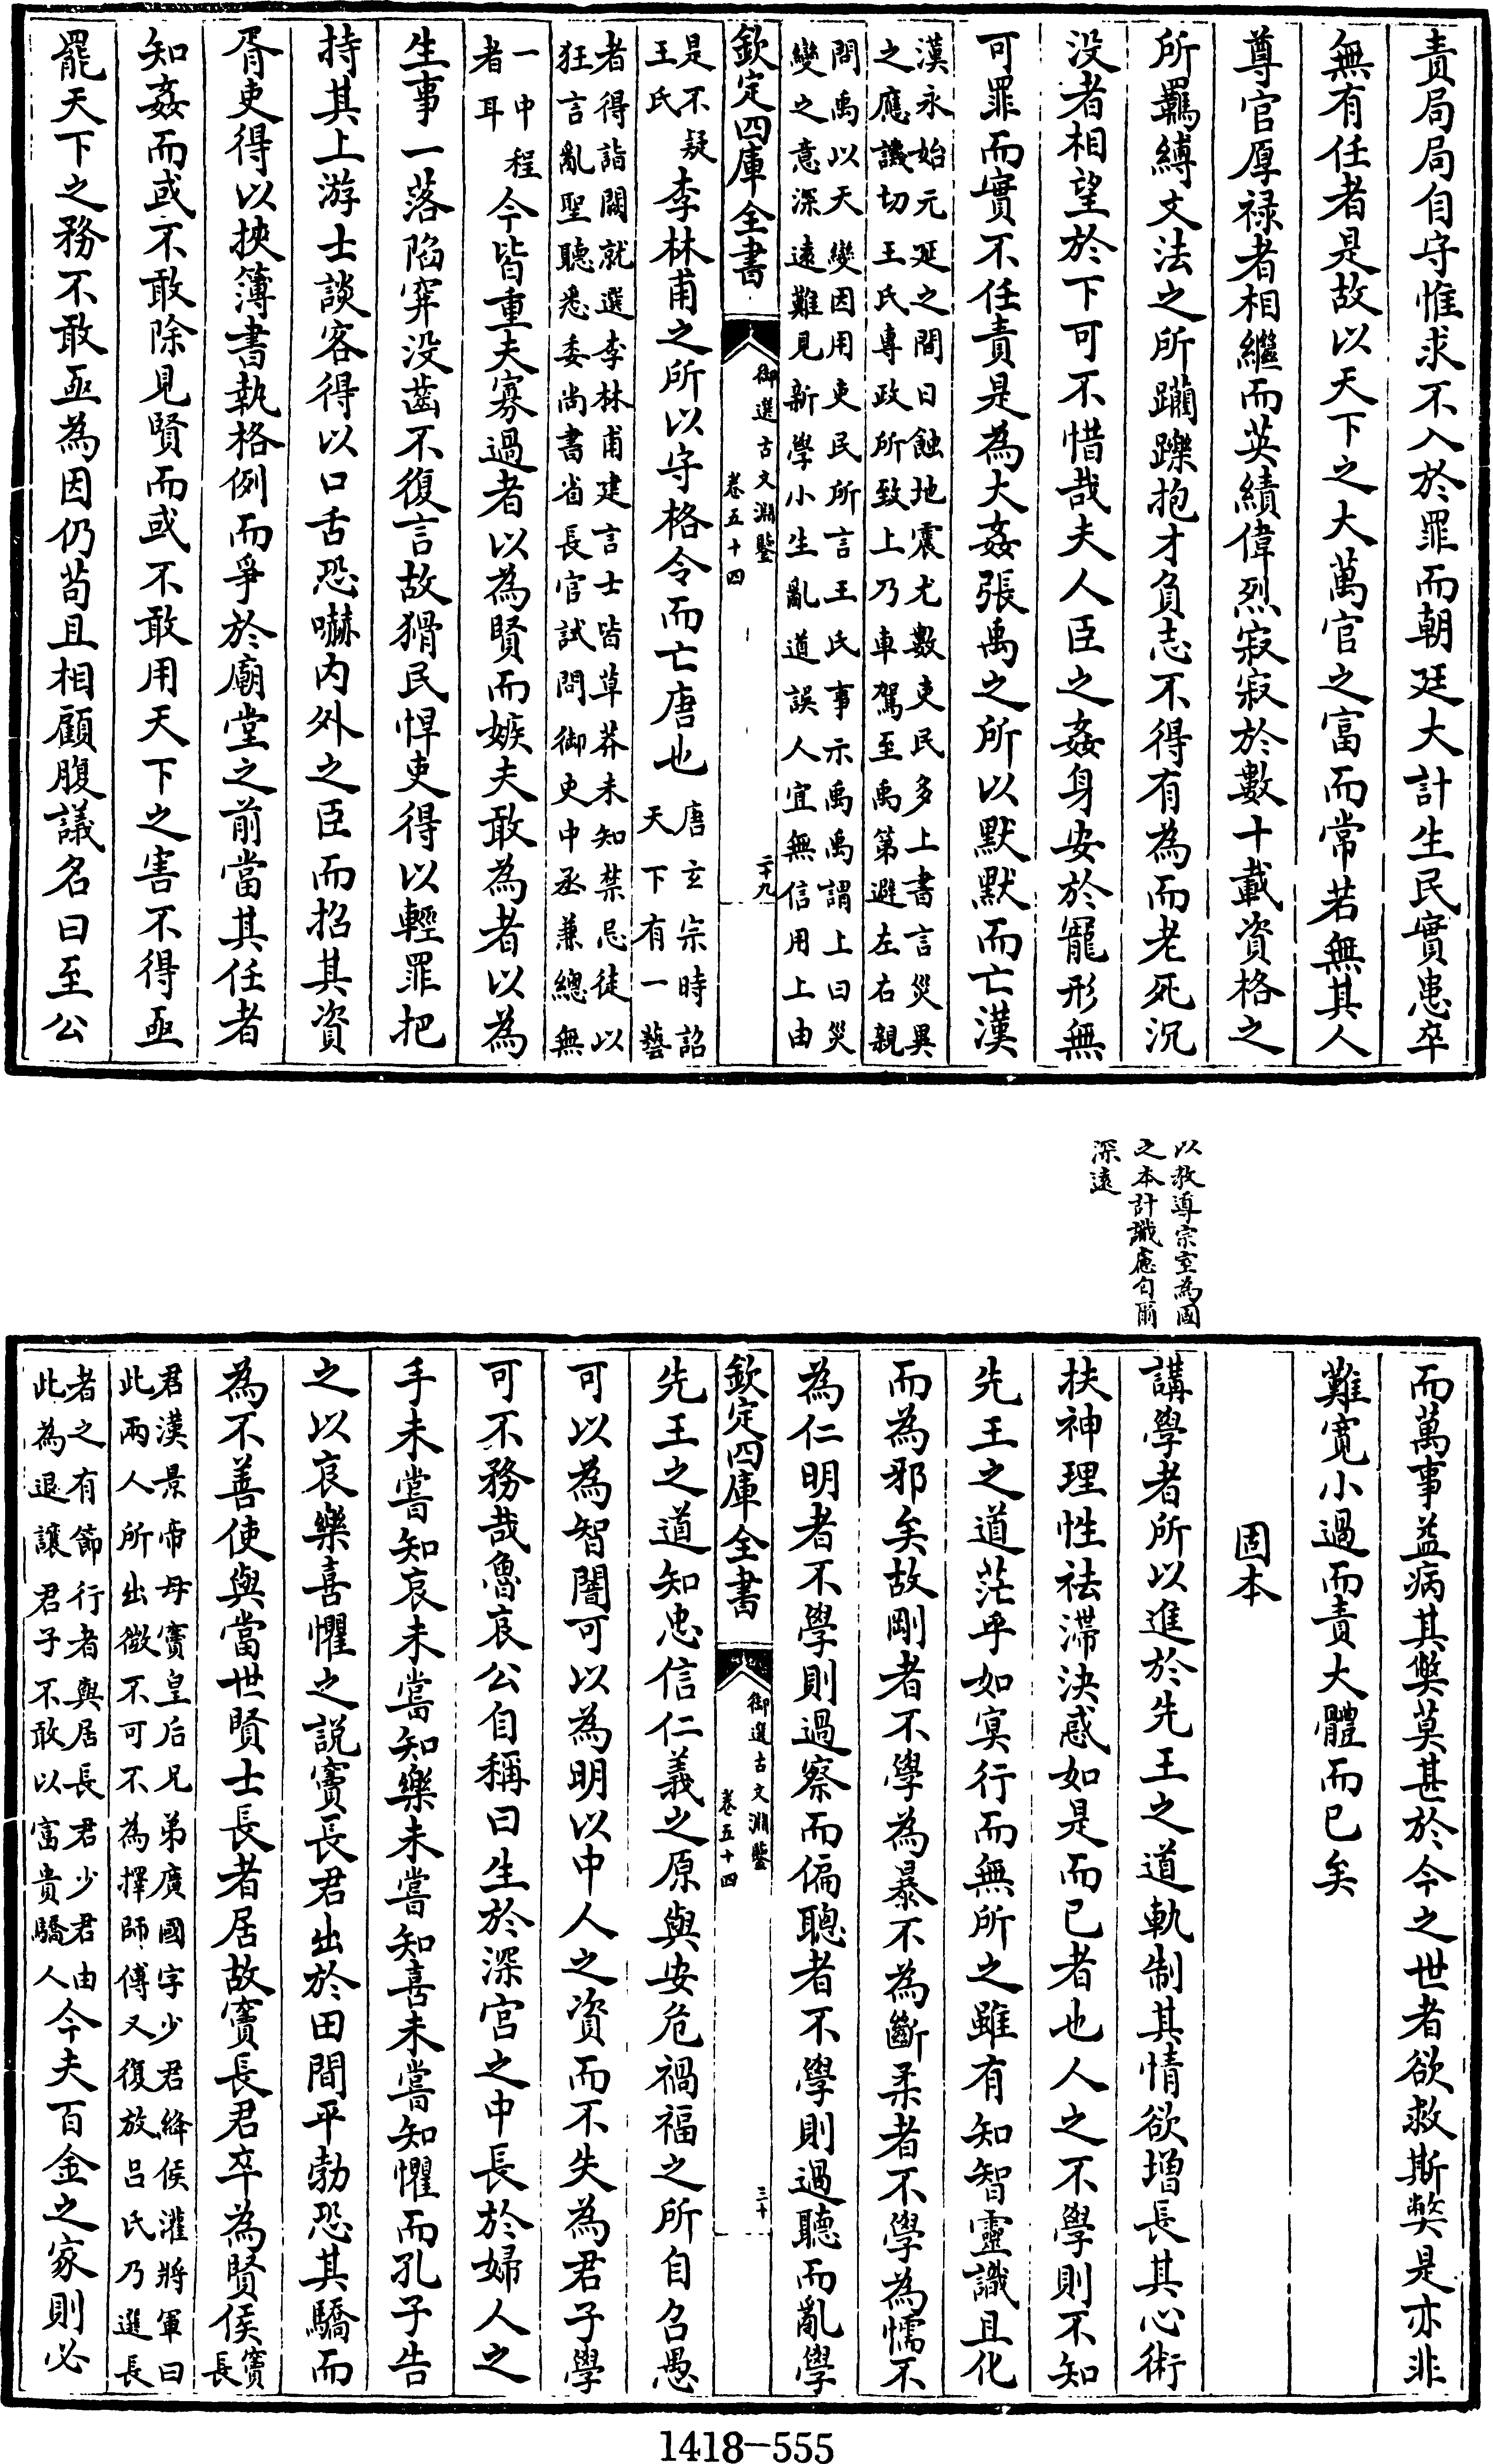 責局局自守惟求不入於罪而朝廷大計生民實患卒
無有任者是故以天下之大萬官之富而常若無其人
尊官厚祿者相繼而英績偉烈寂寂於數十載資格之
所羈縛文法之所躪躒抱才負志不得有為而老死沉
没者相望於下可不惜哉夫人臣之姦身安於寵形無
可罪而實不任責是為大姦張禹之所以默默而亡漢
漢永始元延之間日蝕地震尤數吏民多上書言災異
之應譏切王氏專政所致上乃車駕至禹第避左右親
問禹以天變因用吏民所言王氏事示禹禹謂上曰災
變之意深遠難見新學小生亂道誤人宜無信用上由
欽定四庫全書
御選古文淵鑒
卷五十四
二十九
是不疑
王氏
李林甫之所以守格令而亡唐也
唐玄宗時詔
天下有一藝
者得詣闕就選李林甫建言士皆草莽未知禁忌徒以
狂言亂聖聽悉委尚書省長官試問御史中丞兼總無
一中程
者耳
今皆重夫寡過者以為賢而嫉夫敢為者以為
生事一落陷穽没齒不復言故猾民悍吏得以輕罪把
持其上游士談客得以口舌恐嚇内外之臣而招其資
胥吏得以挾簿書執格例而爭於廟堂之前當其任者
知姦而或不敢除見賢而或不敢用天下之害不得亟
罷天下之務不敢亟為因仍苟且相顧腹議名曰至公
以教導宗室為固
之本計識慮自爾
深遠
而萬事益病其獘莫甚於今之世者欲救斯獘是亦非
難寛小過而責大體而已矣
固本
講學者所以進於先王之道軌制其情欲增長其心術
扶神理性祛滯決惑如是而已者也人之不學則不知
先王之道茫乎如㝠行而無所之雖有知智靈識且化
而為邪矣故剛者不學為暴不為斷柔者不學為懦不
為仁明者不學則過察而偏聰者不學則過聽而亂學
欽定四庫全書
御選古文淵鑒
卷五十四
三十
先王之道知忠信仁義之原與安危禍福之所自召愚
可以為智闇可以為明以中人之資而不失為君子學
可不務哉魯哀公自稱曰生於深宫之中長於婦人之
手未嘗知哀未嘗知樂未嘗知喜未嘗知懼而孔子告
之以哀樂喜懼之説竇長君出於田間平勃恐其驕而
為不善使與當世賢士長者居故竇長君卒為賢侯
竇
長
君漢景帝母竇皇后兄弟廣國字少君絳侯灌將軍曰
此兩人所出微不可不為擇師傅又復放吕氏乃選長
者之有節行者與居長君少君由
此為退讓君子不敢以富貴驕人
今夫百金之家則必
1418-555